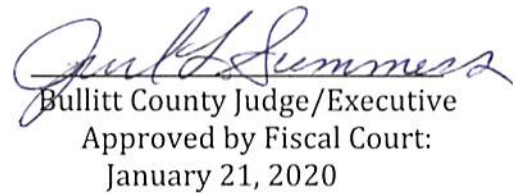 Summers
Bullitt County Judge/Executive
Approved by Fiscal Court:
January 21, 2020